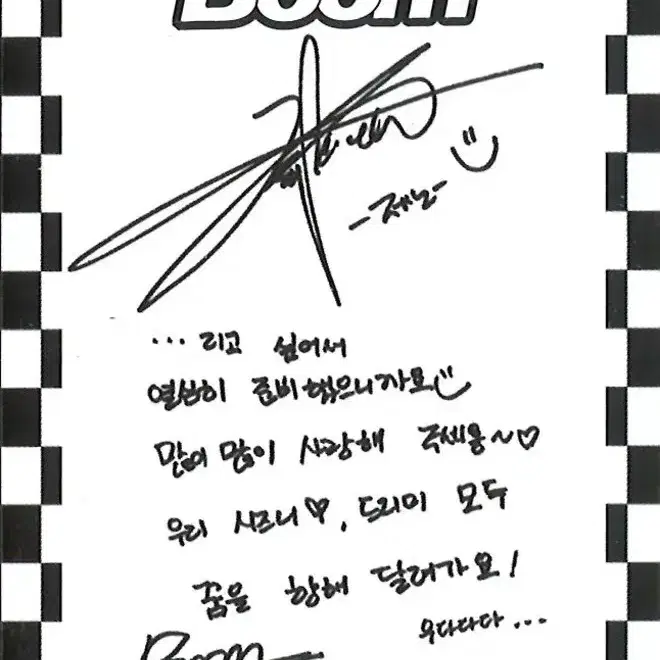 Boom
-제노-
...리고 싶어서
열심히 준비했으니까요
많이 많이 사랑해 주세용~♡
우리 시즈니♡, 드리미 모두
꿈을 향해 달려가요!
우다다다...
Boom